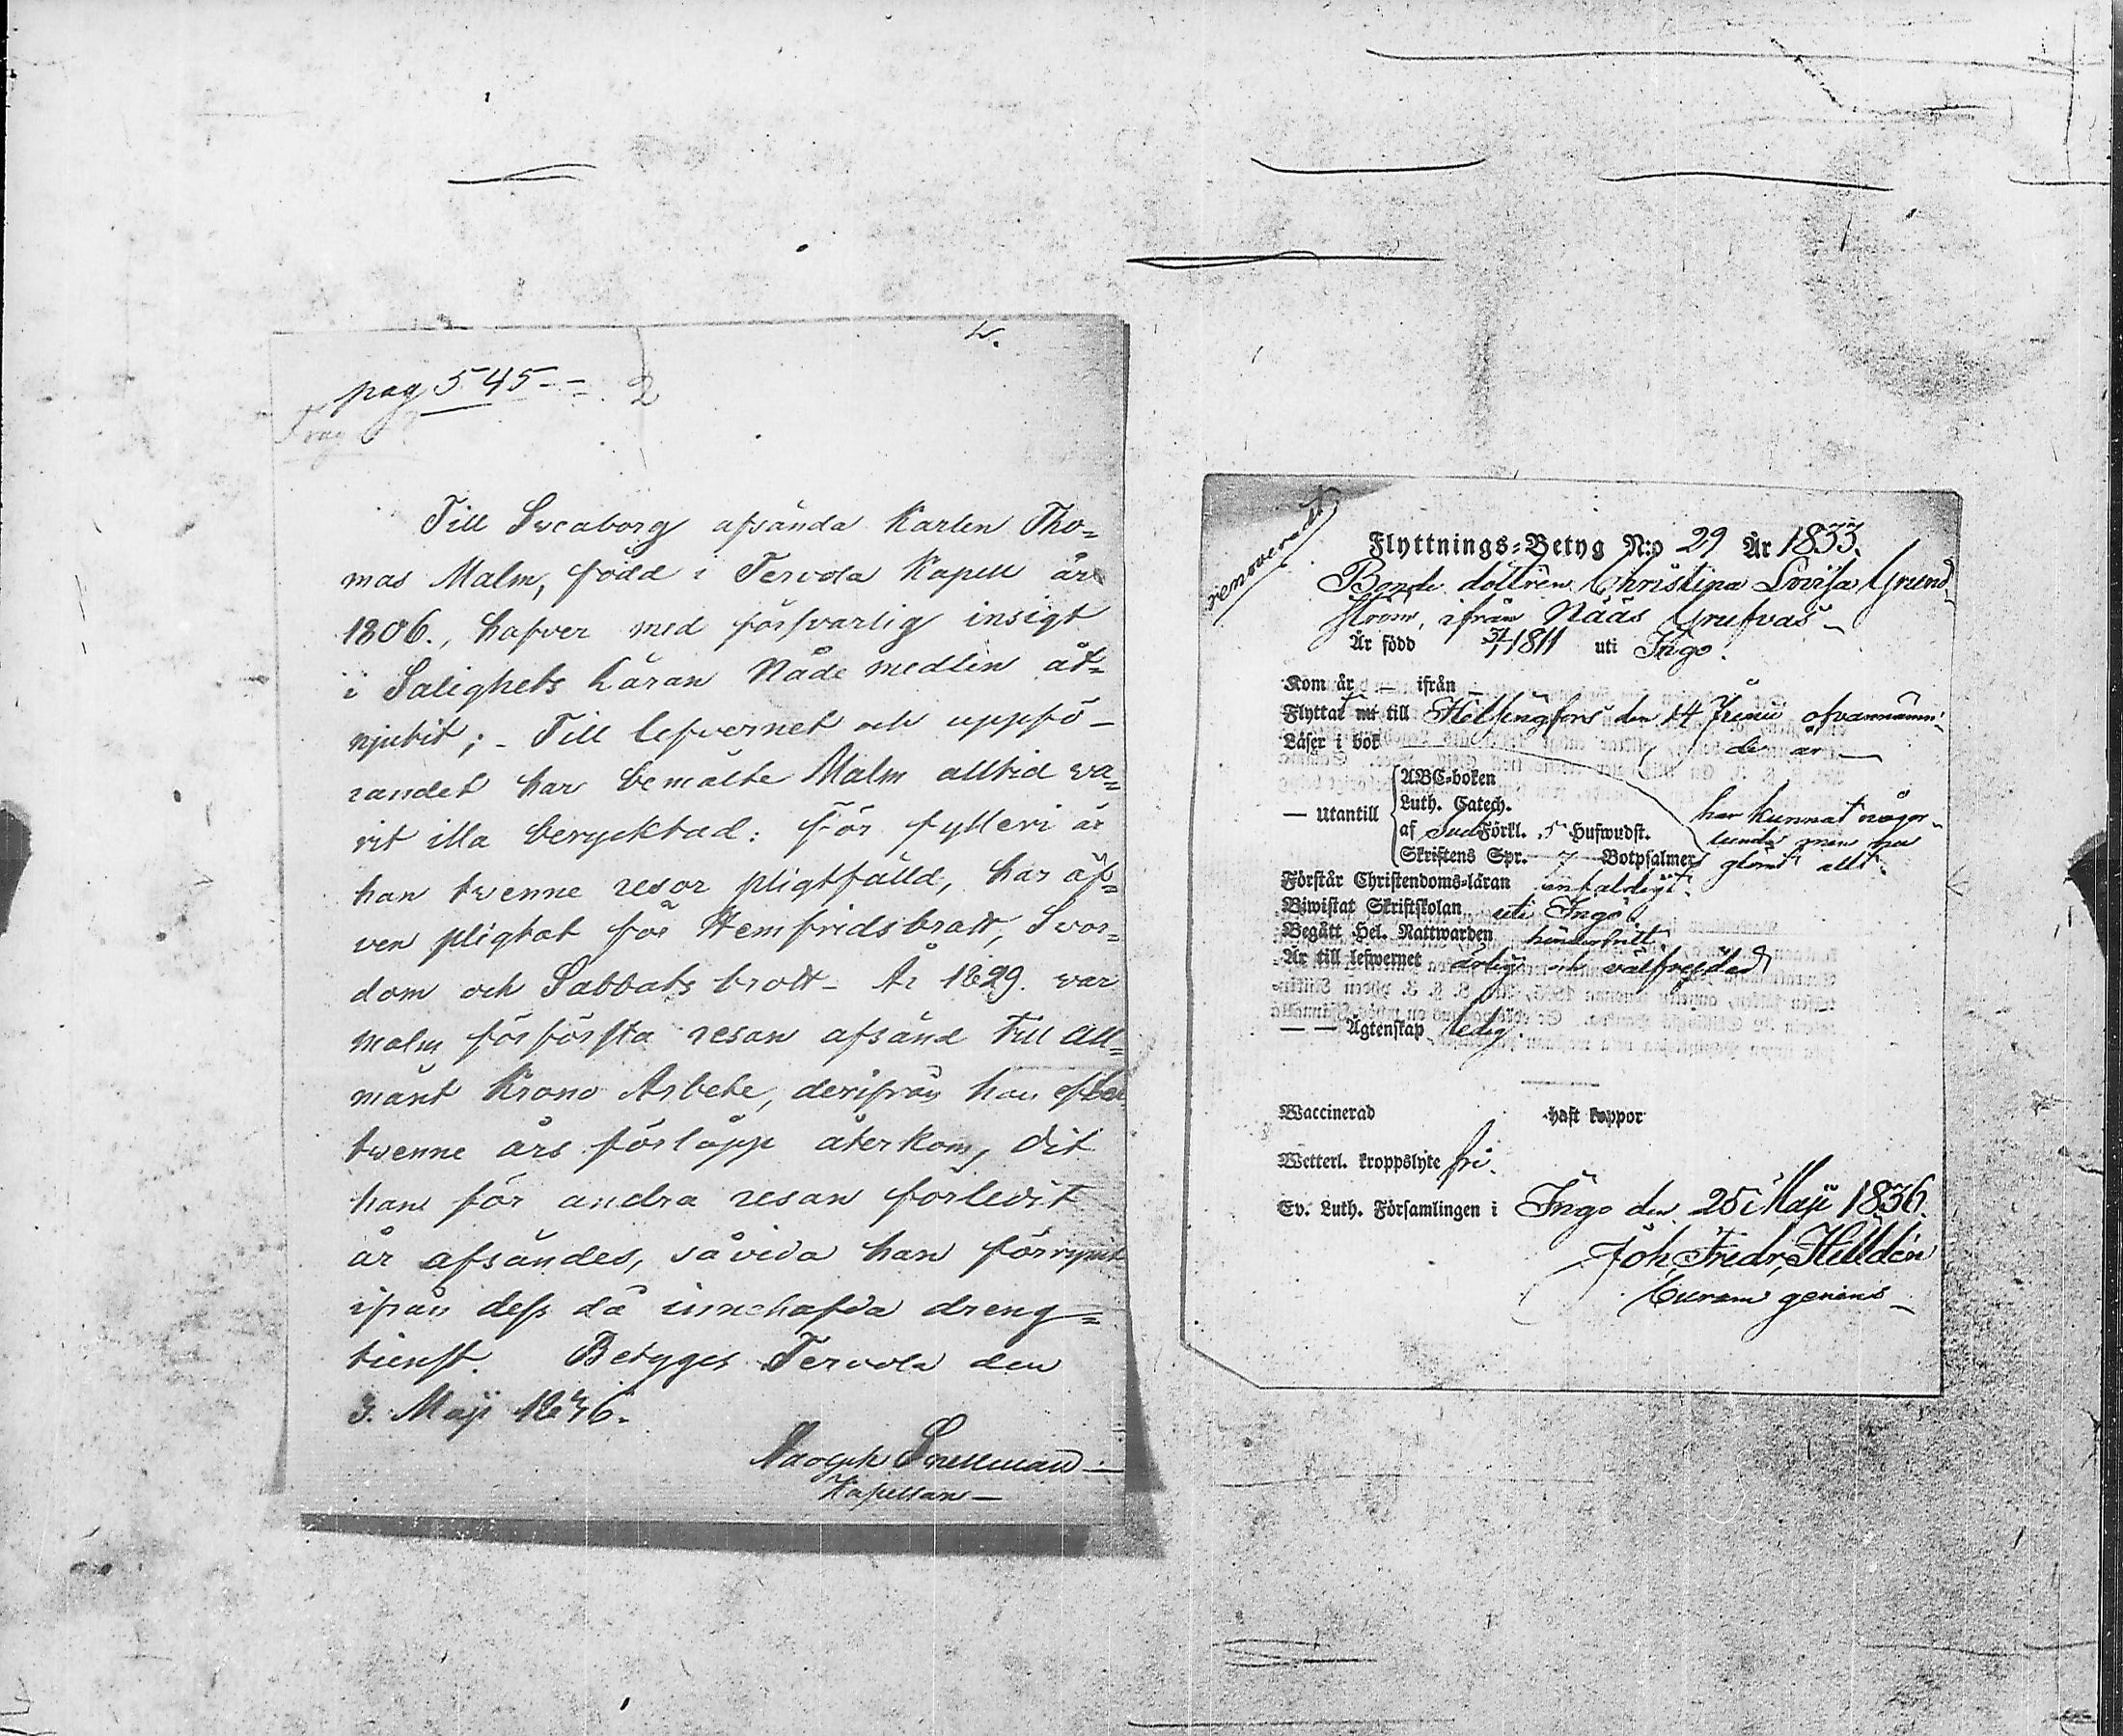 pag 545
2
Till Sveaborg afsända Karlen Tho=
mas Malm, född i Tervola Kapell år
1806., hafver med försvarlig insigt
i Salighets Läran Nåde medlen åt=
njutit; - Till lefvernet och uppfö-
randet har bemälte Malm alltid va=
rit illa beryktad: För fylleri är
han tvenne resor pligtfälld, har äf=
ven pligtat för Hemfridsbrott, Svor=
dom och Sabbats brott - År 1829. var
Malm för första resan afsänd till All=
mänt Krono Arbete, derifrån han efter
tvenne års förlopp återkom, dit
han för andra resan förledit
år afsändes, såvida han förrymt
ifrån dess då innehafda dreng=
tienst. Betyges Tervola den
3. Maji 1836.
Adolph Snellman
Kapellan
renoverad
Flyttnings-Betyg N:o 29 År 1833.
Bonde dottren Christina Lovisa Grund
ström, ifrån Nääs Grufvas
Är född 31/1 1811 uti Ingo.
Kom år — ifrån —
Flyttat nu till Helsingfors den 14 Junii ofvannämn-
Läser i bok de år
— utantill ABC-boken
Luth. Catech. har kunnat någor-
af Sved. Förkl. 5 Hufwudst. lunda men har
Skriftens Spr. 7 Botpsalmer glömt allt.
Förstår Christendoms-läran enfaldigt.
Biwistat Skriftskolan uti Ingo.
Begått Hel. Nattwarden hinderfritt.
Är till lefwernet ärlig och välfrejdad
— — Ägtenskap ledig.
Waccinerad haft koppor
Wetterl. kroppslyte fri.
Ev. Luth. Församlingen i Ingo den 25 Maji 1836.
Joh. Fredr. Hilldén
Curam gerens